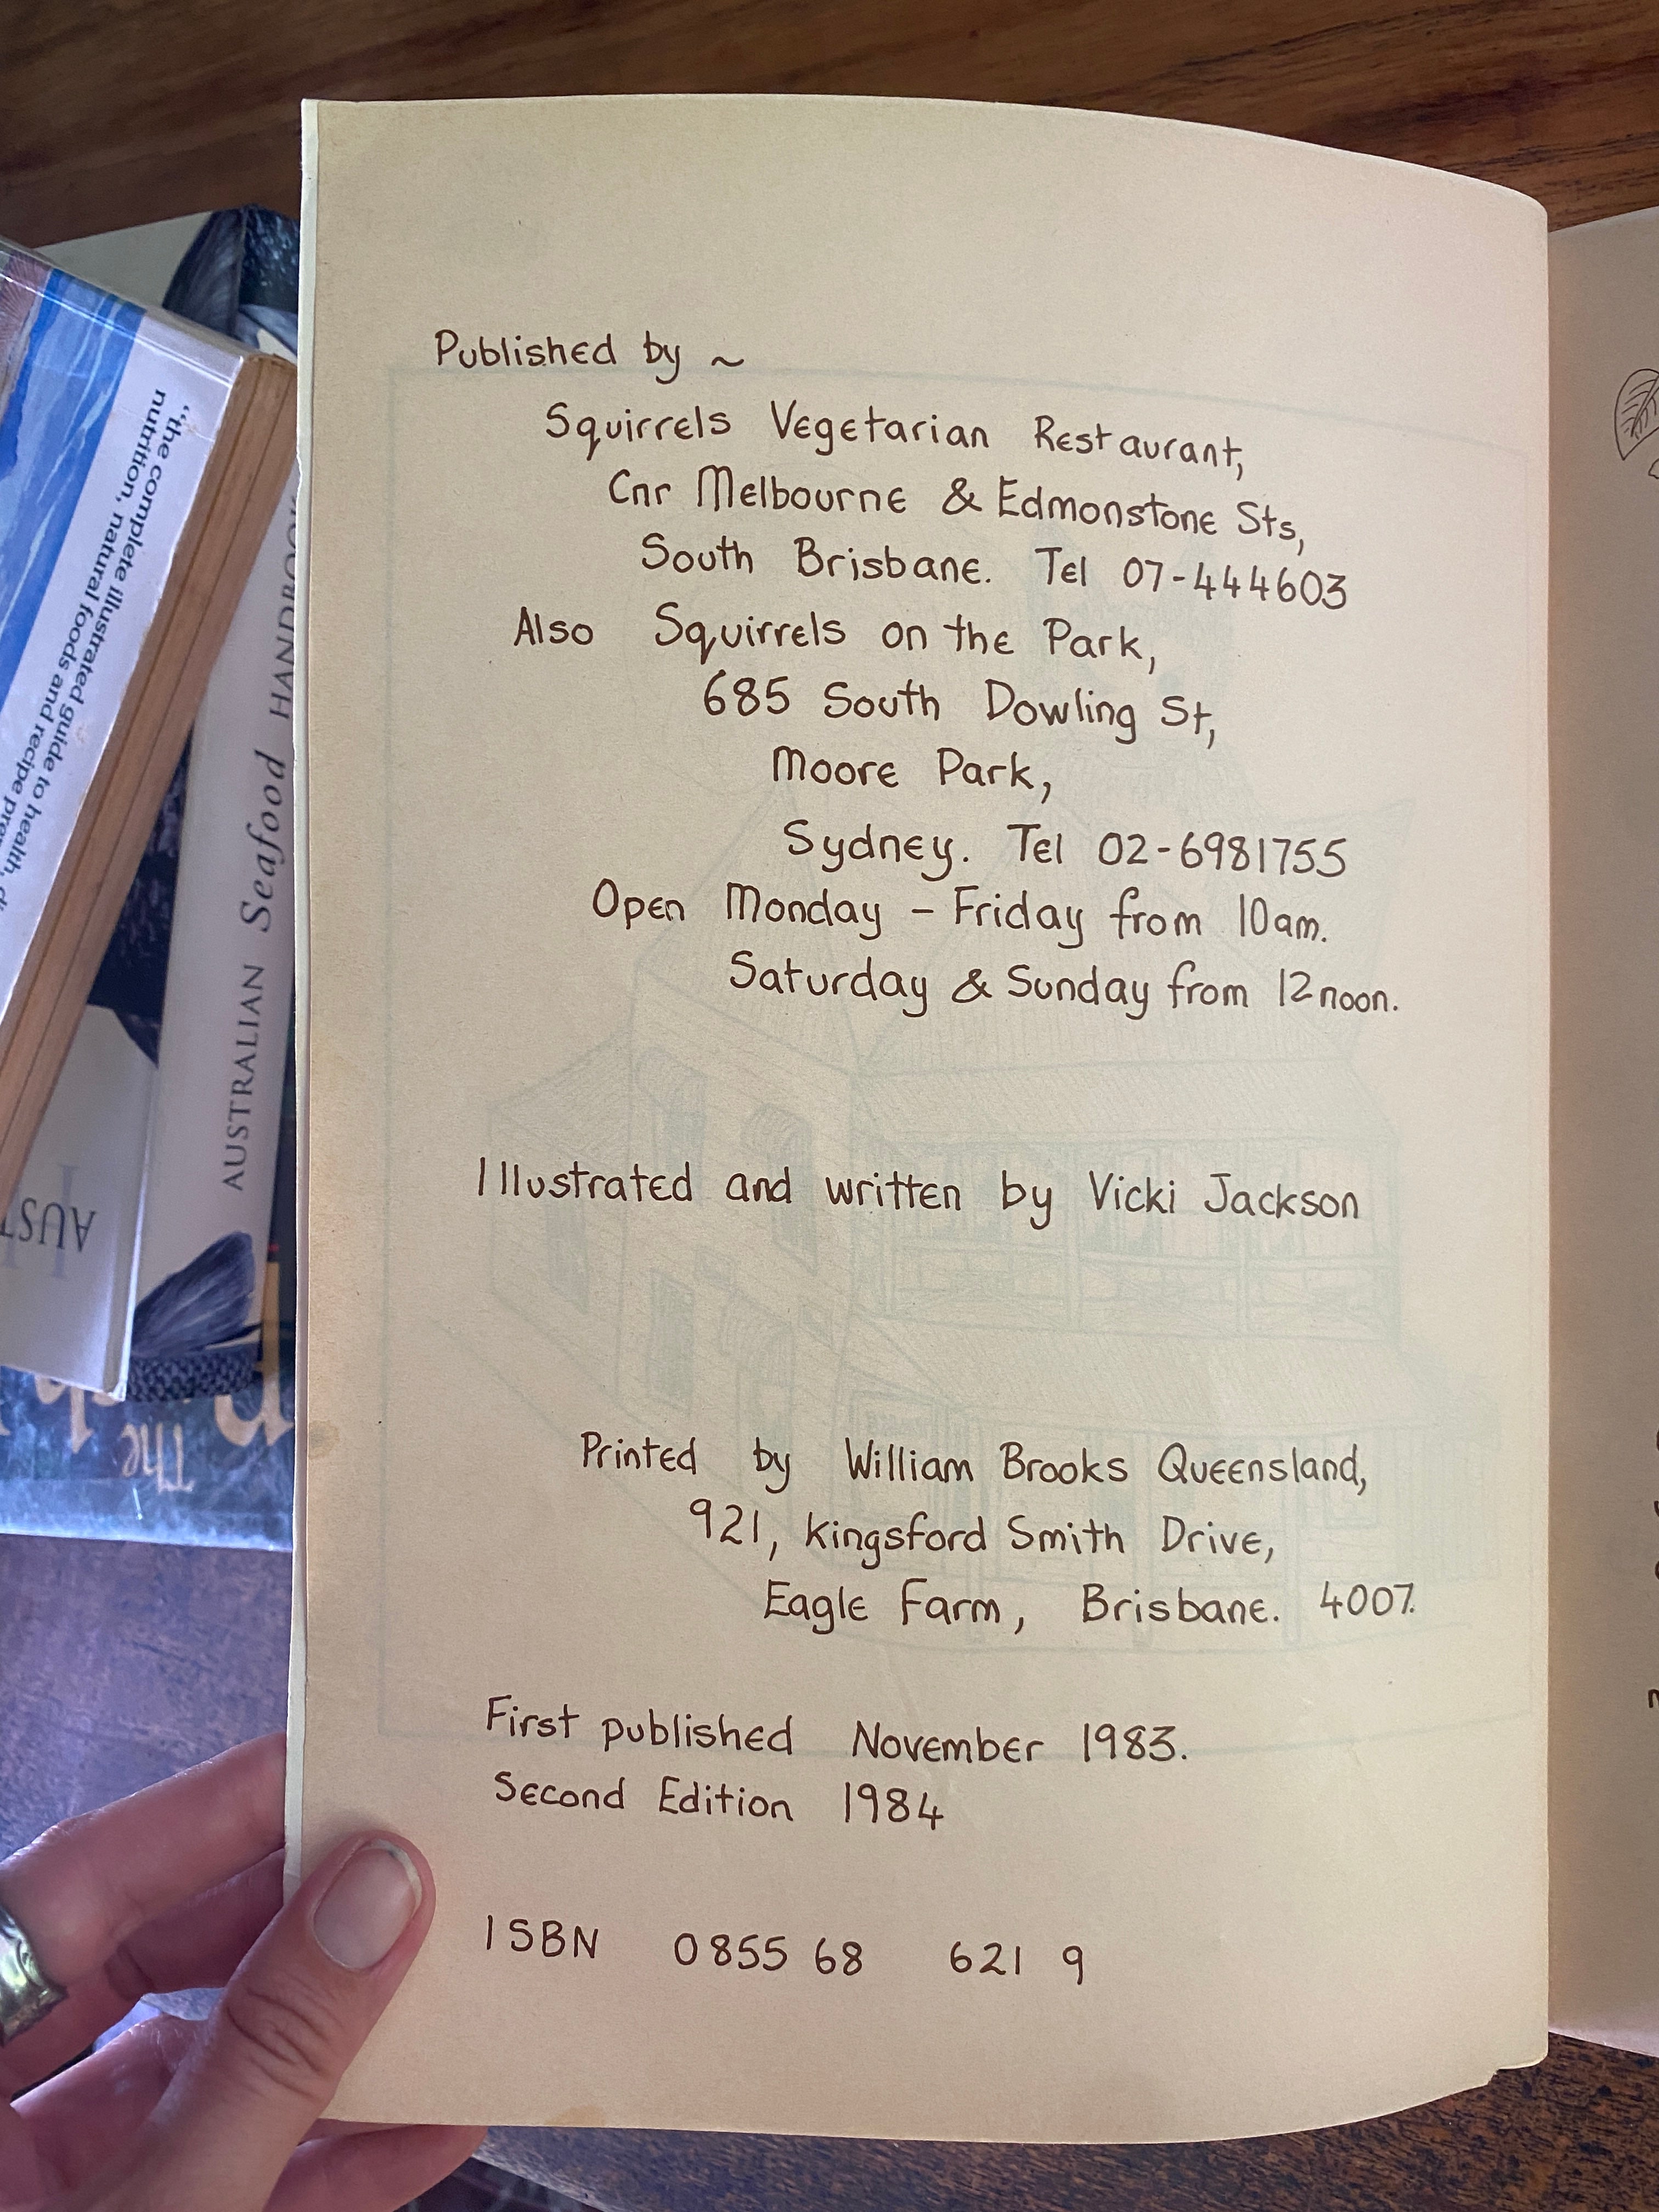 Published by ~
Squirrels Vegetarian Restaurant,
Cnr Melbourne & Edmonstone Sts,
South Brisbane. Tel 07-444603
Also Squirrels on the Park,
685 South Dowling St,
Moore Park,
Sydney. Tel 02-6981755
Open Monday – Friday from 10am.
Saturday & Sunday from 12 noon.
Illustrated and written by Vicki Jackson
Printed by William Brooks Queensland,
921, Kingsford Smith Drive,
Eagle Farm, Brisbane. 4007.
First published November 1983.
Second Edition 1984
ISBN 0855 68 621 9
"the complete illustrated guide to health,
nutrition, natural foods and recipe
AUSTRALIAN Seafood HANDBOOK
AUST
The